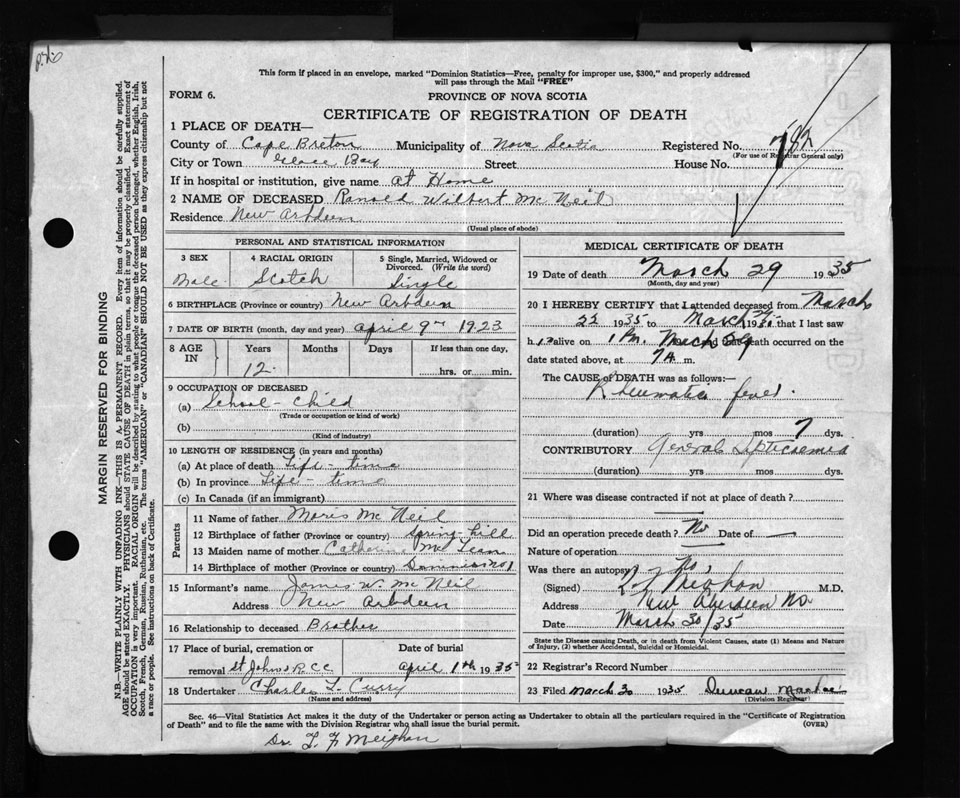 This form if placed in an envelope, marked "Dominion Statistics—Free, penalty for improper use, $300," and properly addressed
will pass through the Mail "FREE"
FORM 6.
PROVINCE OF NOVA SCOTIA
CERTIFICATE OF REGISTRATION OF DEATH
1 PLACE OF DEATH—
County of Cape Breton Municipality of Nova Scotia Registered No. 782
(For use of Registrar General only)
City or Town Glace Bay Street House No.
If in hospital or institution, give name at Home
2 NAME OF DECEASED Ranold Wilbert Mc Neil
Residence New Arbdeen
(Usual place of abode)
PERSONAL AND STATISTICAL INFORMATION
3 SEX 4 RACIAL ORIGIN 5 Single, Married, Widowed or
Divorced. (Write the word)
Male. Scotch Single
6 BIRTHPLACE (Province or country) New Arbdeen
7 DATE OF BIRTH (month, day and year) april 9th 1923
8 AGE IN Years Months Days If less than one day,
12 hrs. or min.
9 OCCUPATION OF DECEASED
(a) School - child
(Trade or occupation or kind of work)
(b)
(Kind of industry)
10 LENGTH OF RESIDENCE (in years and months)
(a) At place of death Life - time
(b) In province Life - time
(c) In Canada (if an immigrant)
Parents
11 Name of father Moris Mc Neil
12 Birthplace of father (Province or country) Spring-hill
13 Maiden name of mother Catherine Mc Lean
14 Birthplace of mother (Province or country)
15 Informant's name James W. Mc Neil
Address New Arbdeen
16 Relationship to deceased Brother
17 Place of burial, cremation or Date of burial
removal St Johns R.C.C. april 1th 1935
18 Undertaker Charles L. Curry
(Name and address)
MEDICAL CERTIFICATE OF DEATH
19 Date of death March 29 1935
(Month, day and year)
20 I HEREBY CERTIFY that I attended deceased from March
22 1935 to March 29 1935 that I last saw
him alive on 1 Pm. March 29 and that death occurred on the
date stated above, at 7 A. m.
The CAUSE of DEATH was as follows:—
Rheumatic fever.
(duration) yrs mos 7 dys.
CONTRIBUTORY General Septicaemia
(duration) yrs mos dys.
21 Where was disease contracted if not at place of death?
Did an operation precede death? No Date of —
Nature of operation
Was there an autopsy? No
(Signed) Meighan M.D.
Address New Aberdeen NS
Date March 30/35
State the Disease causing Death, or in death from Violent Causes, state (1) Means and Nature
of Injury, (2) whether Accidental, Suicidal or Homicidal.
22 Registrar's Record Number
23 Filed march 30 1935 Duncan
(Division Registrar)
Sec. 46—Vital Statistics Act makes it the duty of the Undertaker or person acting as Undertaker to obtain all the particulars required in the "Certificate of Registration
of Death" and to file the same with the Division Registrar who shall issue the burial permit. (OVER)
Dr. L. F Meighan
MARGIN RESERVED FOR BINDING
N.B.—WRITE PLAINLY WITH UNFADING INK—THIS IS A PERMANENT RECORD. Every item of information should be carefully supplied.
AGE should be stated EXACTLY. PHYSICIANS should STATE CAUSE OF DEATH in plain terms, so that it may be properly classified. Exact statement of
OCCUPATION is very important. RACIAL ORIGIN will be described by stating to what people or tongue the deceased person belonged, whether English, Irish,
Scotch, French, German, Russian, Ruthenian, etc. The terms "AMERICAN" or "CANADIAN" SHOULD NOT BE USED as they express citizenship but not
a race or people. See instructions on back of Certificate.